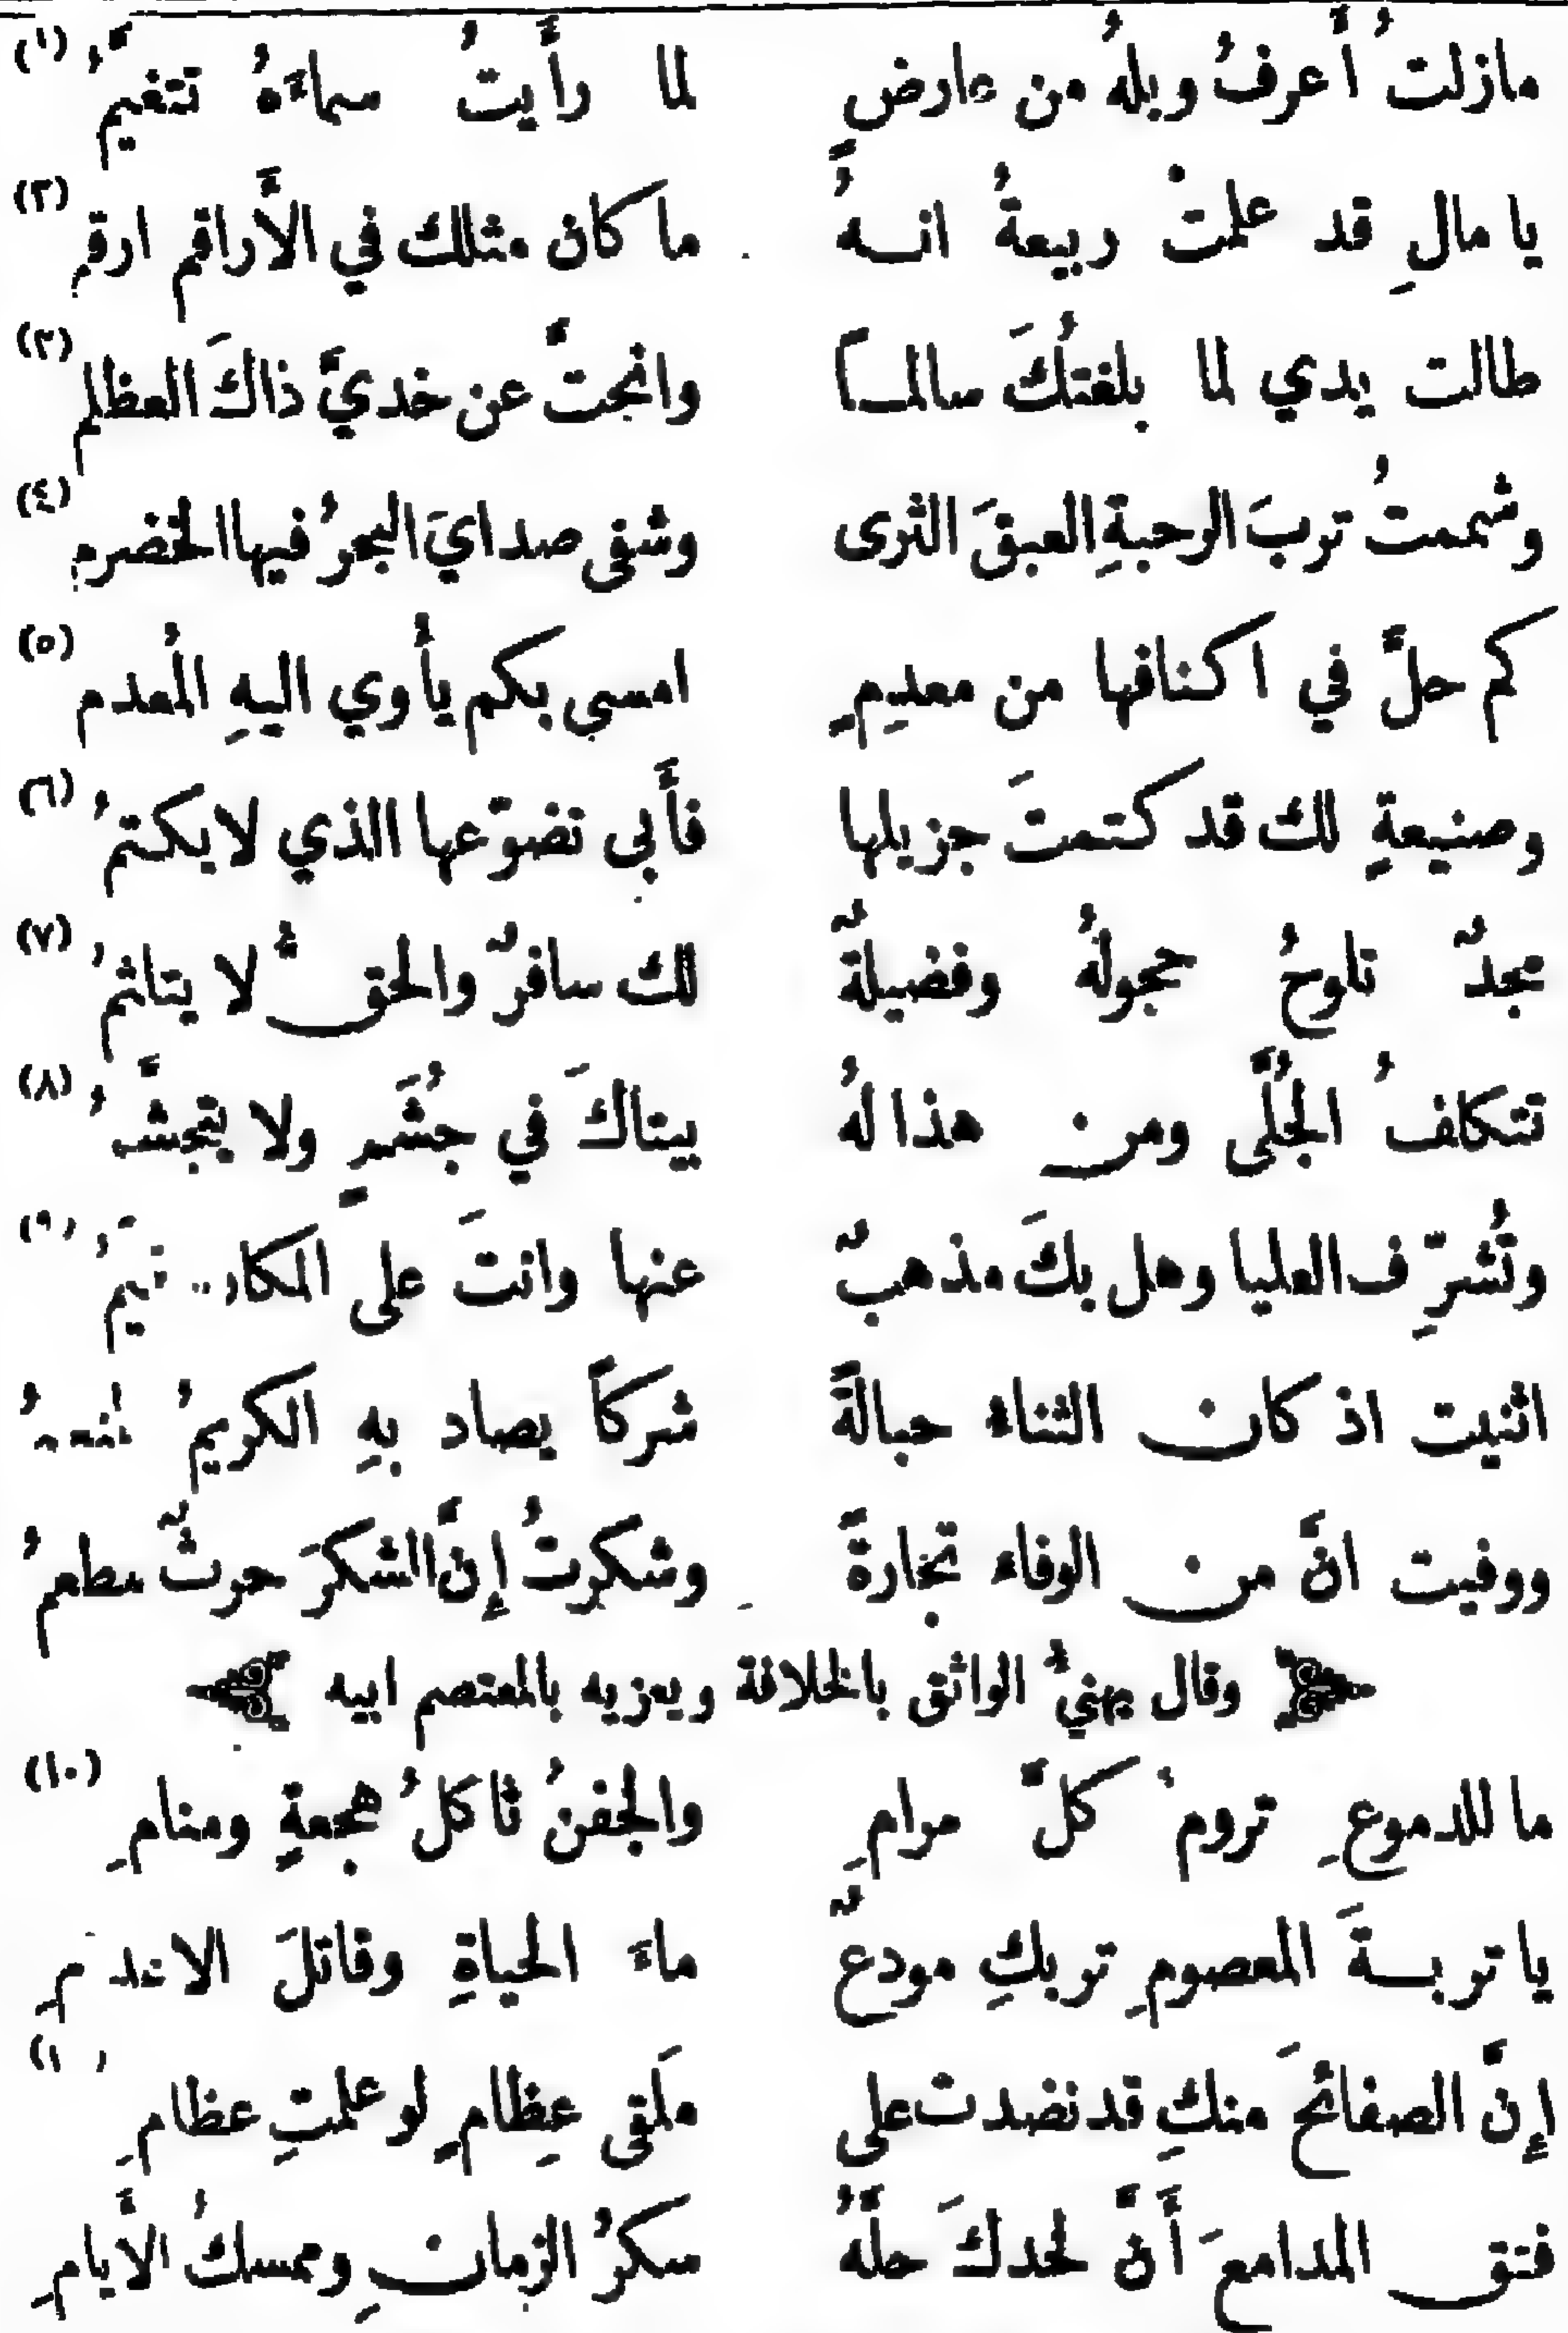 مازلتُ أَعرفُ وبلهُ من عارضٍ لما رأَيتُ سماءَهُ تتغيَّمُ (١)
يا مالِ قد علمتْ ربيعةُ انــهُ ما كان مثلك في الأَراقم ارقم (٢)
طالت يدي لما بلغتُكَ سالمــاً وانجتَّ عن خديَّ ذاكَ العظلم (٣)
وشممتُ تربَ الرحبةِ العبقَ الثرى وشفى صدايَ البحرُ فيها الخضرم (٤)
كم حلَّ في اكنافها من معدِمٍ امسى بكم يأْوي اليهِ المُعدم (٥)
وصنيعةٍ لك قد كتمتَ جزيلها فأَبى تضوّعها الذي لا يكتمُ (٦)
مجدٌ تلوحُ حجولهُ وفضيلةٌ لك سافرٌ والحقُّ لا يتلثمُ (٧)
تتكلفُ الجُلَّى ومن هذا لهُ بيتاكَ في جُشَمٍ ولا يتجشَّمُ (٨)
وتُشرِّف العليا وهل بكَ مذهبٌ عنها وانتَ على قيّمُ (٩)
اثنيت اذ كان الثناء حبالةً شركاً يصاد بهِ الكريمُ
ووفيت انَّ من الوفاء تجارةً وشكرتُ إِنَّ الشكرَ حرثٌ مطعمُ
وقال يهنيُّ الواثق بالخلافة ويعزيه بالمعتصم ابيه
ما للدموعِ ترومُ كلَّ مرامِ والجفنُ ثاكلُ هجعةٍ ومنامِ (١٠)
يا تربــةَ المعصومِ تربكِ مودعٌ ماءَ الحياةِ وقاتلَ
إِنَّ الصفائحَ منكِ قد نضدت على ملَقى عِظامٍ لو علمتِ عظامِ
فتق المدامعَ أَنَّ لحدكَ حلَّهُ سكرُ الزمانِ وممسكُ الأَيامِ